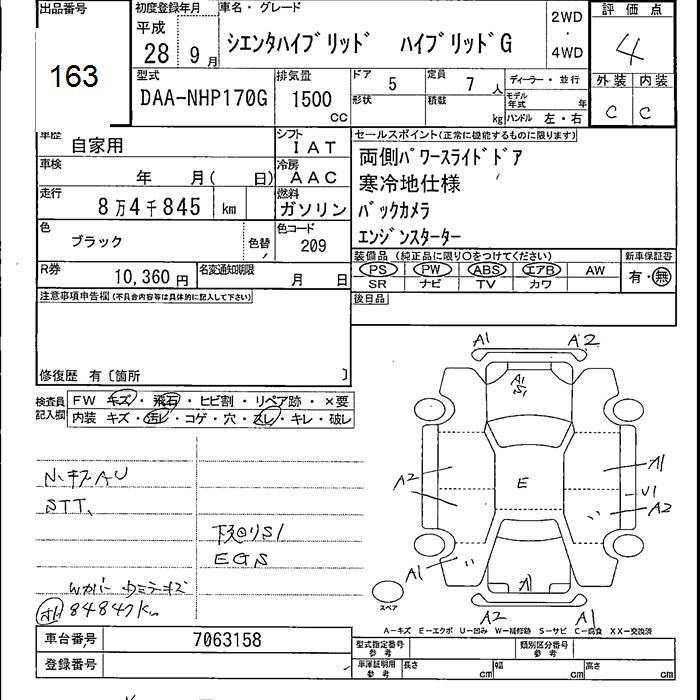 出品番号
163
初度登録年月
平成
28 9月
車名・グレード
シエンタハイブリッド ハイブリッドG
2WD
・
4WD
評価点
4
外装 内装
C C
型式
DAA-NHP170G
排気量
1500
CC
ドア
5
定員
7人
形状
積載
kg
ディーラー・並行
モデル年式 年
ハンドル 左・右
車歴
自家用
シフト
IAT
車検
年 月( 日)
冷房
AAC
走行
8万4千845 km
燃料
ガソリン
色
ブラック
色替
色コード
209
R券
10,360円
名変通知期限
月 日
セールスポイント(正常に機能するものに限ります)
両側パワースライドドア
寒冷地仕様
バックカメラ
エンジンスターター
装備品 (純正品に限り○をつけてください)
PS PW ABS エアB AW
SR ナビ TV カワ
新車保証書
有・無
後日品
注意事項申告欄(不具合内容等は具体的に記入して下さい)
修復歴 有〔箇所 〕
検査員
記入欄
FW キズ・飛石・ヒビ割・リペア跡・×要
内装 キズ・汚レ・コゲ・穴・スレ・キレ・破レ
STT、
下廻りS1
EGS
84847km
A1 A2
A1
S1
A2
E
A1
U1
A2
A1
A1
A2 A1
スペア
A-キズ E-エクボ U-凹み W-補修跡 S-サビ C-腐食 XX-交換済
車台番号 7063158
登録番号
型式指定番号
参考
類別区分番号
参考
車庫証明用
参考
長さ cm
幅 cm
高さ cm